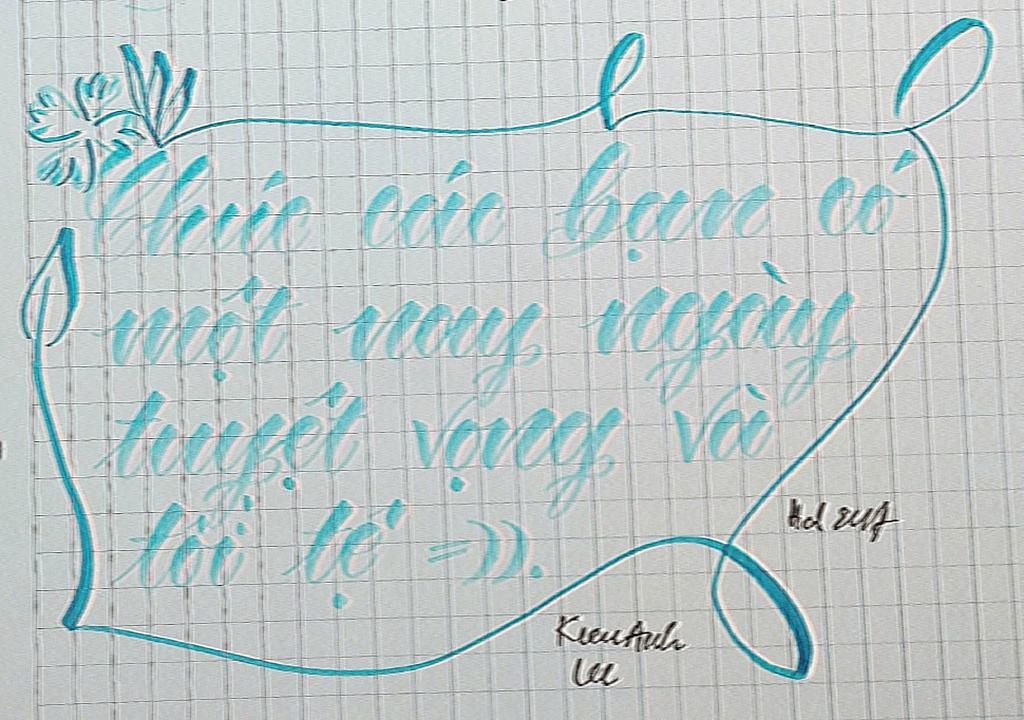 Chúc các bạn có
một nay ngày
tuyệt vọng và
tồi tệ =)).
KieuAnh